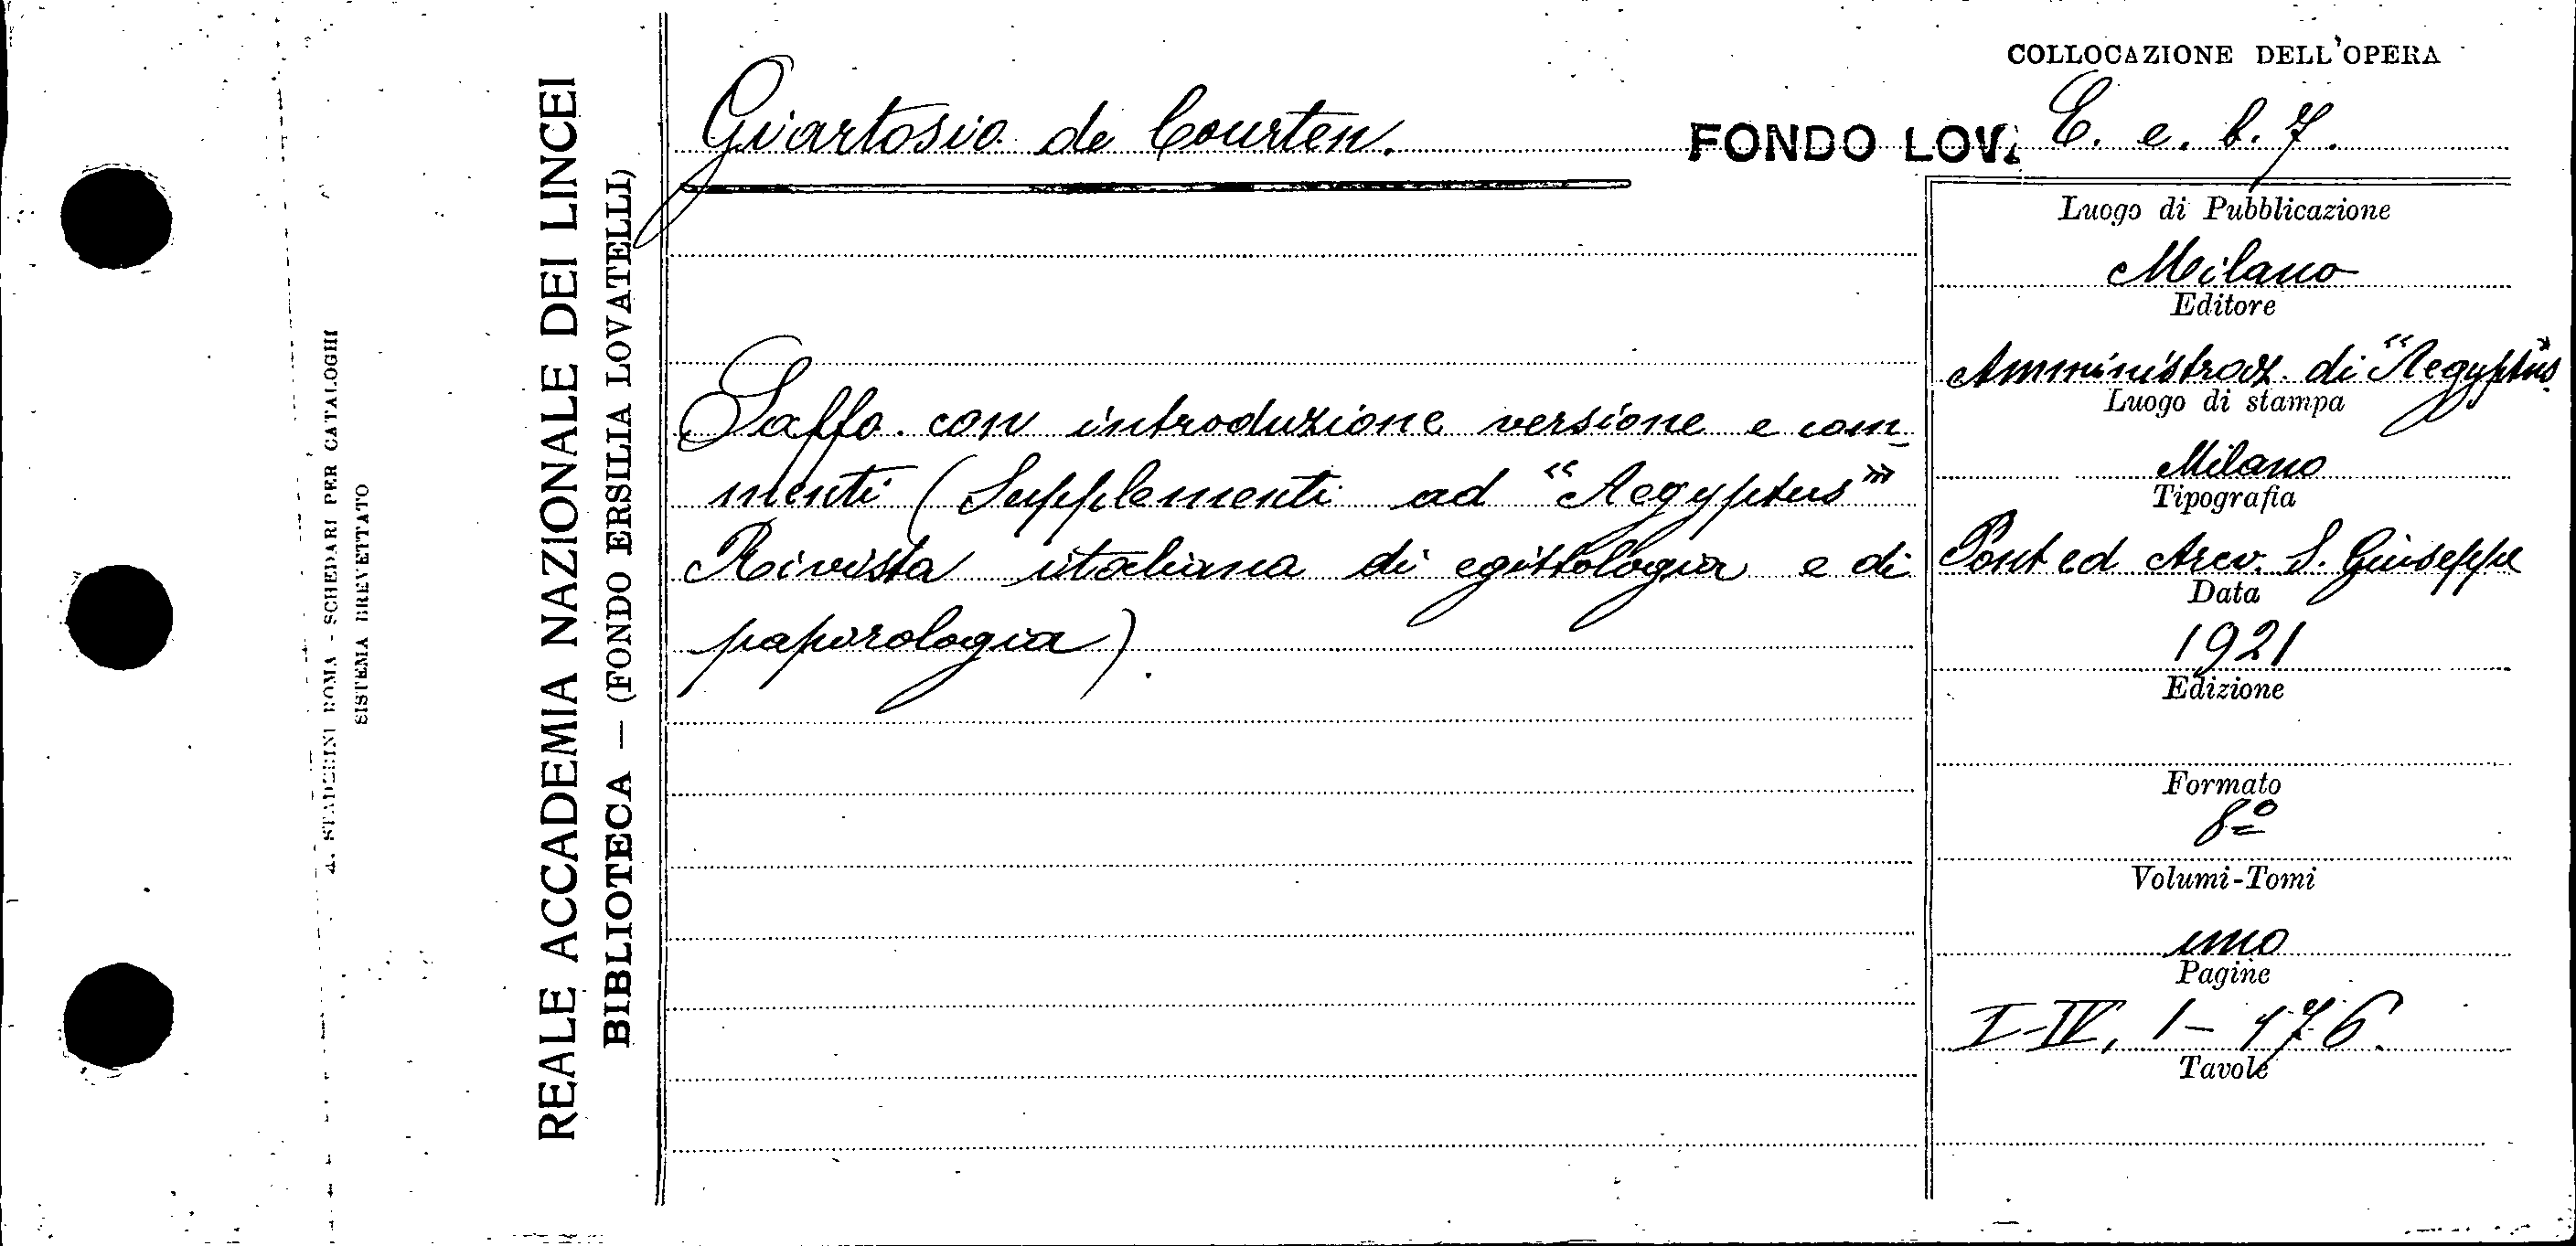 COLLOCAZIONE DELL'OPERA
Giartosio de Courten.
FONDO LOV. C. e. b. 7.
Saffo con introduzione versione e com-
menti (Supplementi ad "Aegyptus"
Rivista italiana di egittologia e di
papirologia).
Luogo di Pubblicazione
Milano
Editore
Amministraz. di "Aegyptus"
Luogo di stampa
Milano
Tipografia
Pont ed Arciv. S. Giuseppe
Data
1921
Edizione
Formato
8º
Volumi-Tomi
uno
Pagine
I-IV, 1-176.
Tavole
REALE ACCADEMIA NAZIONALE DEI LINCEI
BIBLIOTECA — (FONDO ERSILIA LOVATELLI)
A. STADERINI ROMA - SCHEDARI PER CATALOGHI
SISTEMA BREVETTATO